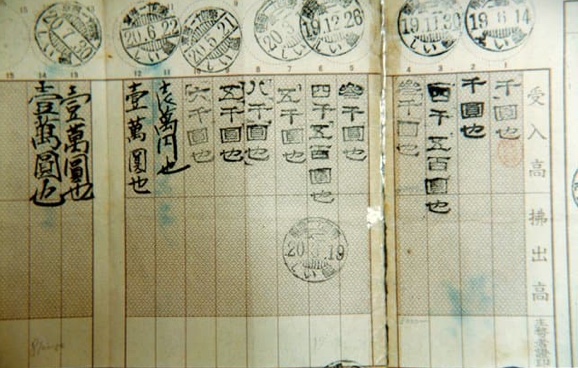 19.6.14
19.11.30
19.12.26
20.6.21
20.6.22
20.7.30
受入高
拂出高
千圓也
千圓也
四千五百圓也
参千圓也
参千圓也
四千五百圓也
五千圓也
八千圓也
五千圓也
六千圓也
萬円也
壹萬圓也
壹萬圓也
壹萬圓也